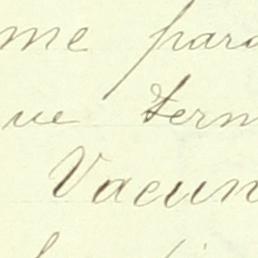 me para
ue tern
Vacun